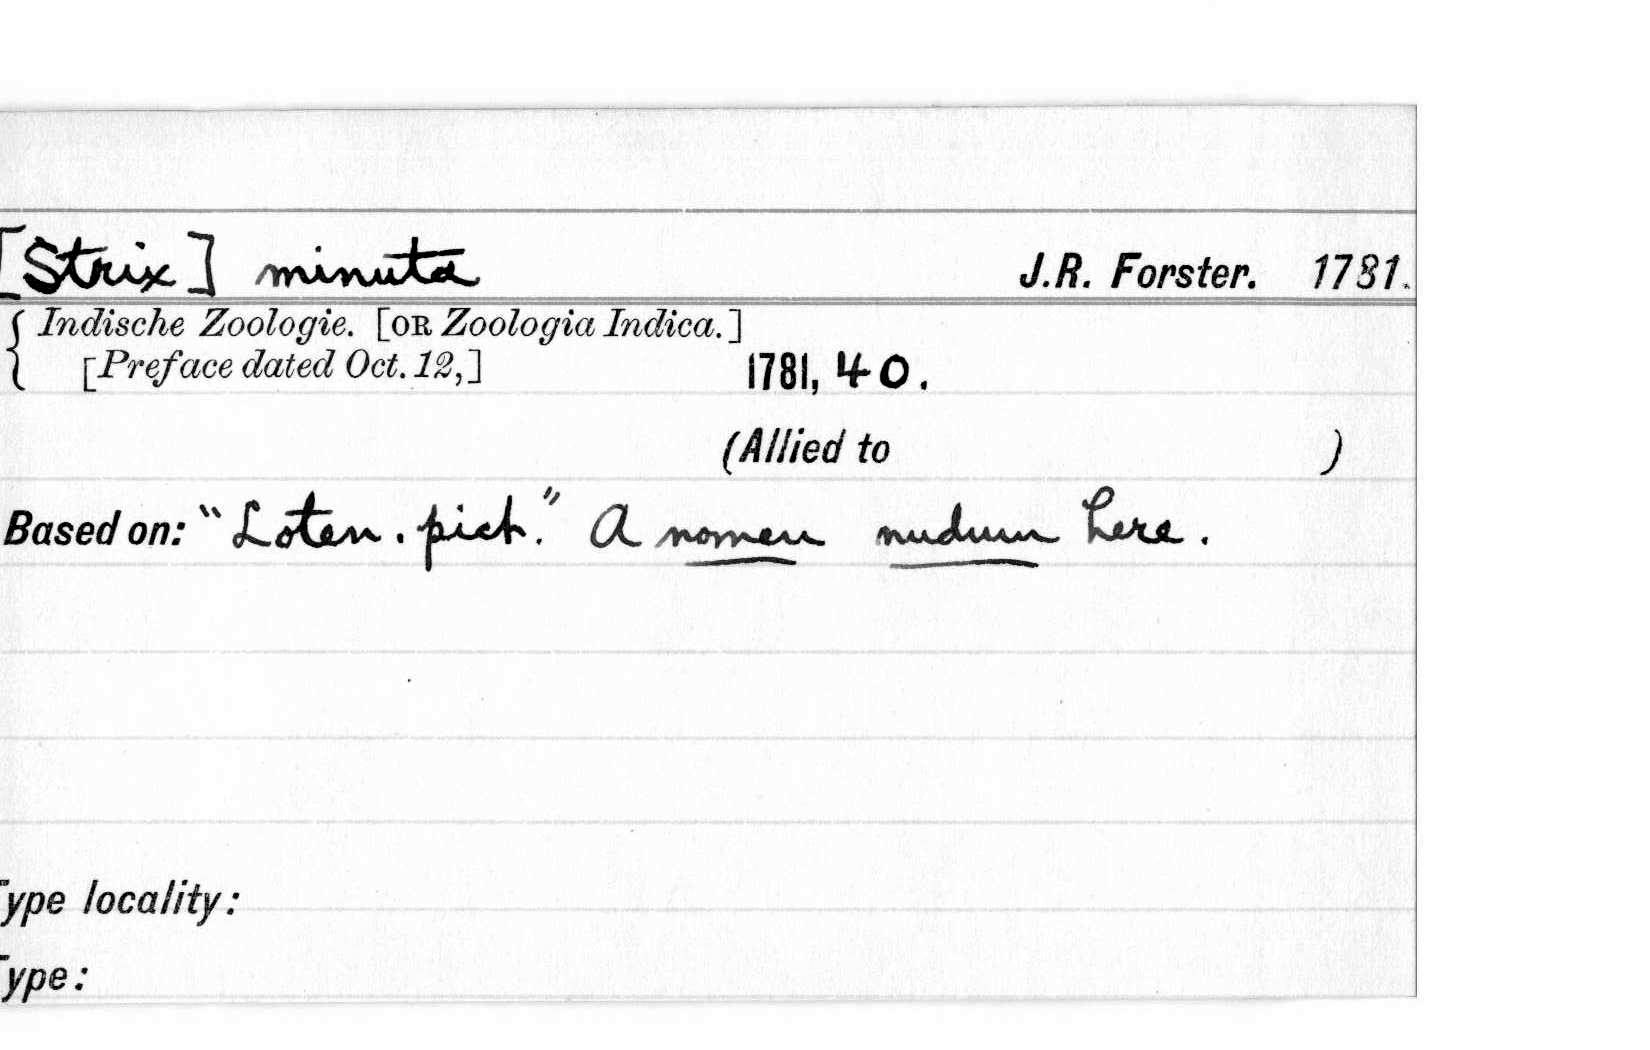 [Strix] minuta J.R. Forster. 1781.
{ Indische Zoologie. [OR Zoologia Indica.]
[Preface dated Oct. 12,] 1781, 40.
(Allied to )
Based on: "Loten. pict." A nomen nudum here.
Type locality:
Type: